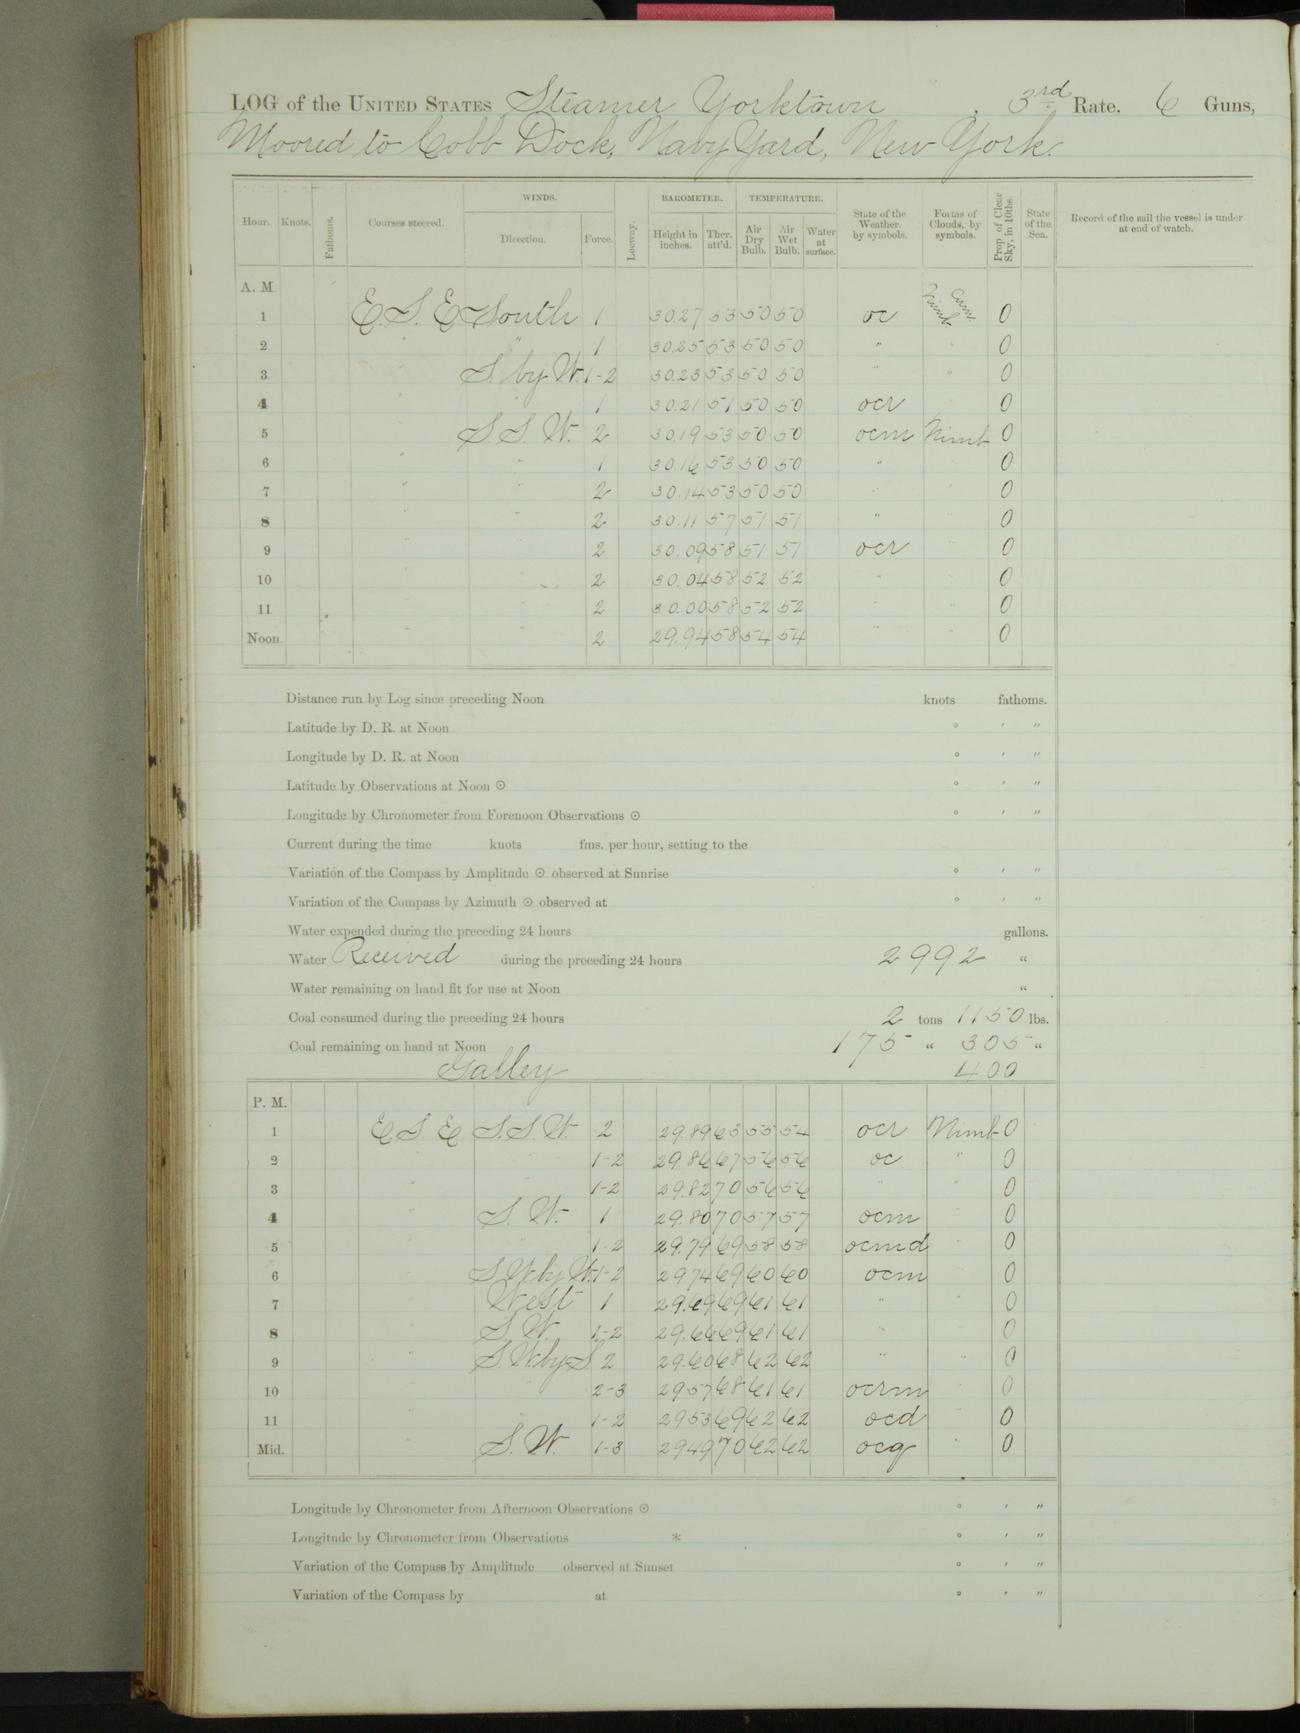 LOG of the UNITED STATES Steamer Yorktown, 3rd Rate, 6 Guns,
Moored to Cobb Dock, Navy Yard, New York.
Hour. Knots. Fathoms. Courses steered. WINDS. Direction. Force. Leeway. BAROMETER. Height in inches. Ther. att'd. TEMPERATURE. Air Dry Bulb. Air Wet Bulb. Water at surface. State of the Weather, by symbols. Forms of Clouds, by symbols. Prop. of Clear Sky, in 10ths. State of the Sea. Record of the sail the vessel is under at end of watch.
A. M.
1 E. S. E South 1 30.27 53 50 50 oc Cum Nimb 0
2 " " 1 30.25 53 50 50 " " 0
3 S. by W. 1-2 30.23 53 50 50 " " 0
4 " " 1 30.21 51 50 50 ocr 0
5 S S. W. 2 30.19 53 50 50 ocm Nimb 0
6 " " 1 30.16 53 50 50 " 0
7 " " 2 30.14 53 50 50 " " 0
8 " " 2 30.11 57 51 51 " " 0
9 " " 2 30.09 58 51 51 ocr " 0
10 " " 2 30.04 58 52 52 " " 0
11 " " 2 30.00 58 52 52 " " 0
Noon. " " 2 29.94 58 54 54 " " 0
Distance run by Log since preceding Noon knots fathoms.
Latitude by D. R. at Noon ° ′ ″
Longitude by D. R. at Noon ° ′ ″
Latitude by Observations at Noon ☉ ° ′ ″
Longitude by Chronometer from Forenoon Observations ☉ ° ′ ″
Current during the time knots fms. per hour, setting to the
Variation of the Compass by Amplitude ☉ observed at Sunrise ° ′ ″
Variation of the Compass by Azimuth ☉ observed at ° ′ ″
Water expended during the preceding 24 hours gallons.
Water Received during the preceding 24 hours 2992 "
Water remaining on hand fit for use at Noon "
Coal consumed during the preceding 24 hours 2 tons 1150 lbs.
Coal remaining on hand at Noon 175 " 305 "
Galley 400
P. M.
1 E S. E S. S. W. 2 29.89 63 55 54 ocr Nimb 0
2 " " 1-2 29.86 67 56 56 oc " 0
3 " " 1-2 29.82 70 56 56 " " 0
4 " S. W. 1 29.80 70 57 57 ocm " 0
5 " 1-2 29.79 69 58 58 ocmd " 0
6 " S W by W. 1-2 29.74 69 60 60 ocm " 0
7 " West 1 29.69 69 61 61 " " 0
8 " S. W. 1-2 29.66 69 61 61 " " 0
9 " S. W by S. 2 29.60 68 62 62 " " 0
10 " " 2-3 29.57 68 61 61 ocrm " 0
11 " " 1-2 29.53 69 62 62 ocd " 0
Mid. " S. W. 1-3 29.49 70 62 62 ocq " 0
Longitude by Chronometer from Afternoon Observations ☉ ° ′ ″
Longitude by Chronometer from Observations * ° ′ ″
Variation of the Compass by Amplitude observed at Sunset ° ′ ″
Variation of the Compass by at ° ′ ″